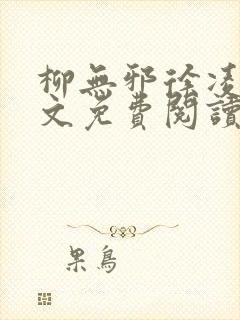 柳無邪徐凌
文免費閱讀
果鳥